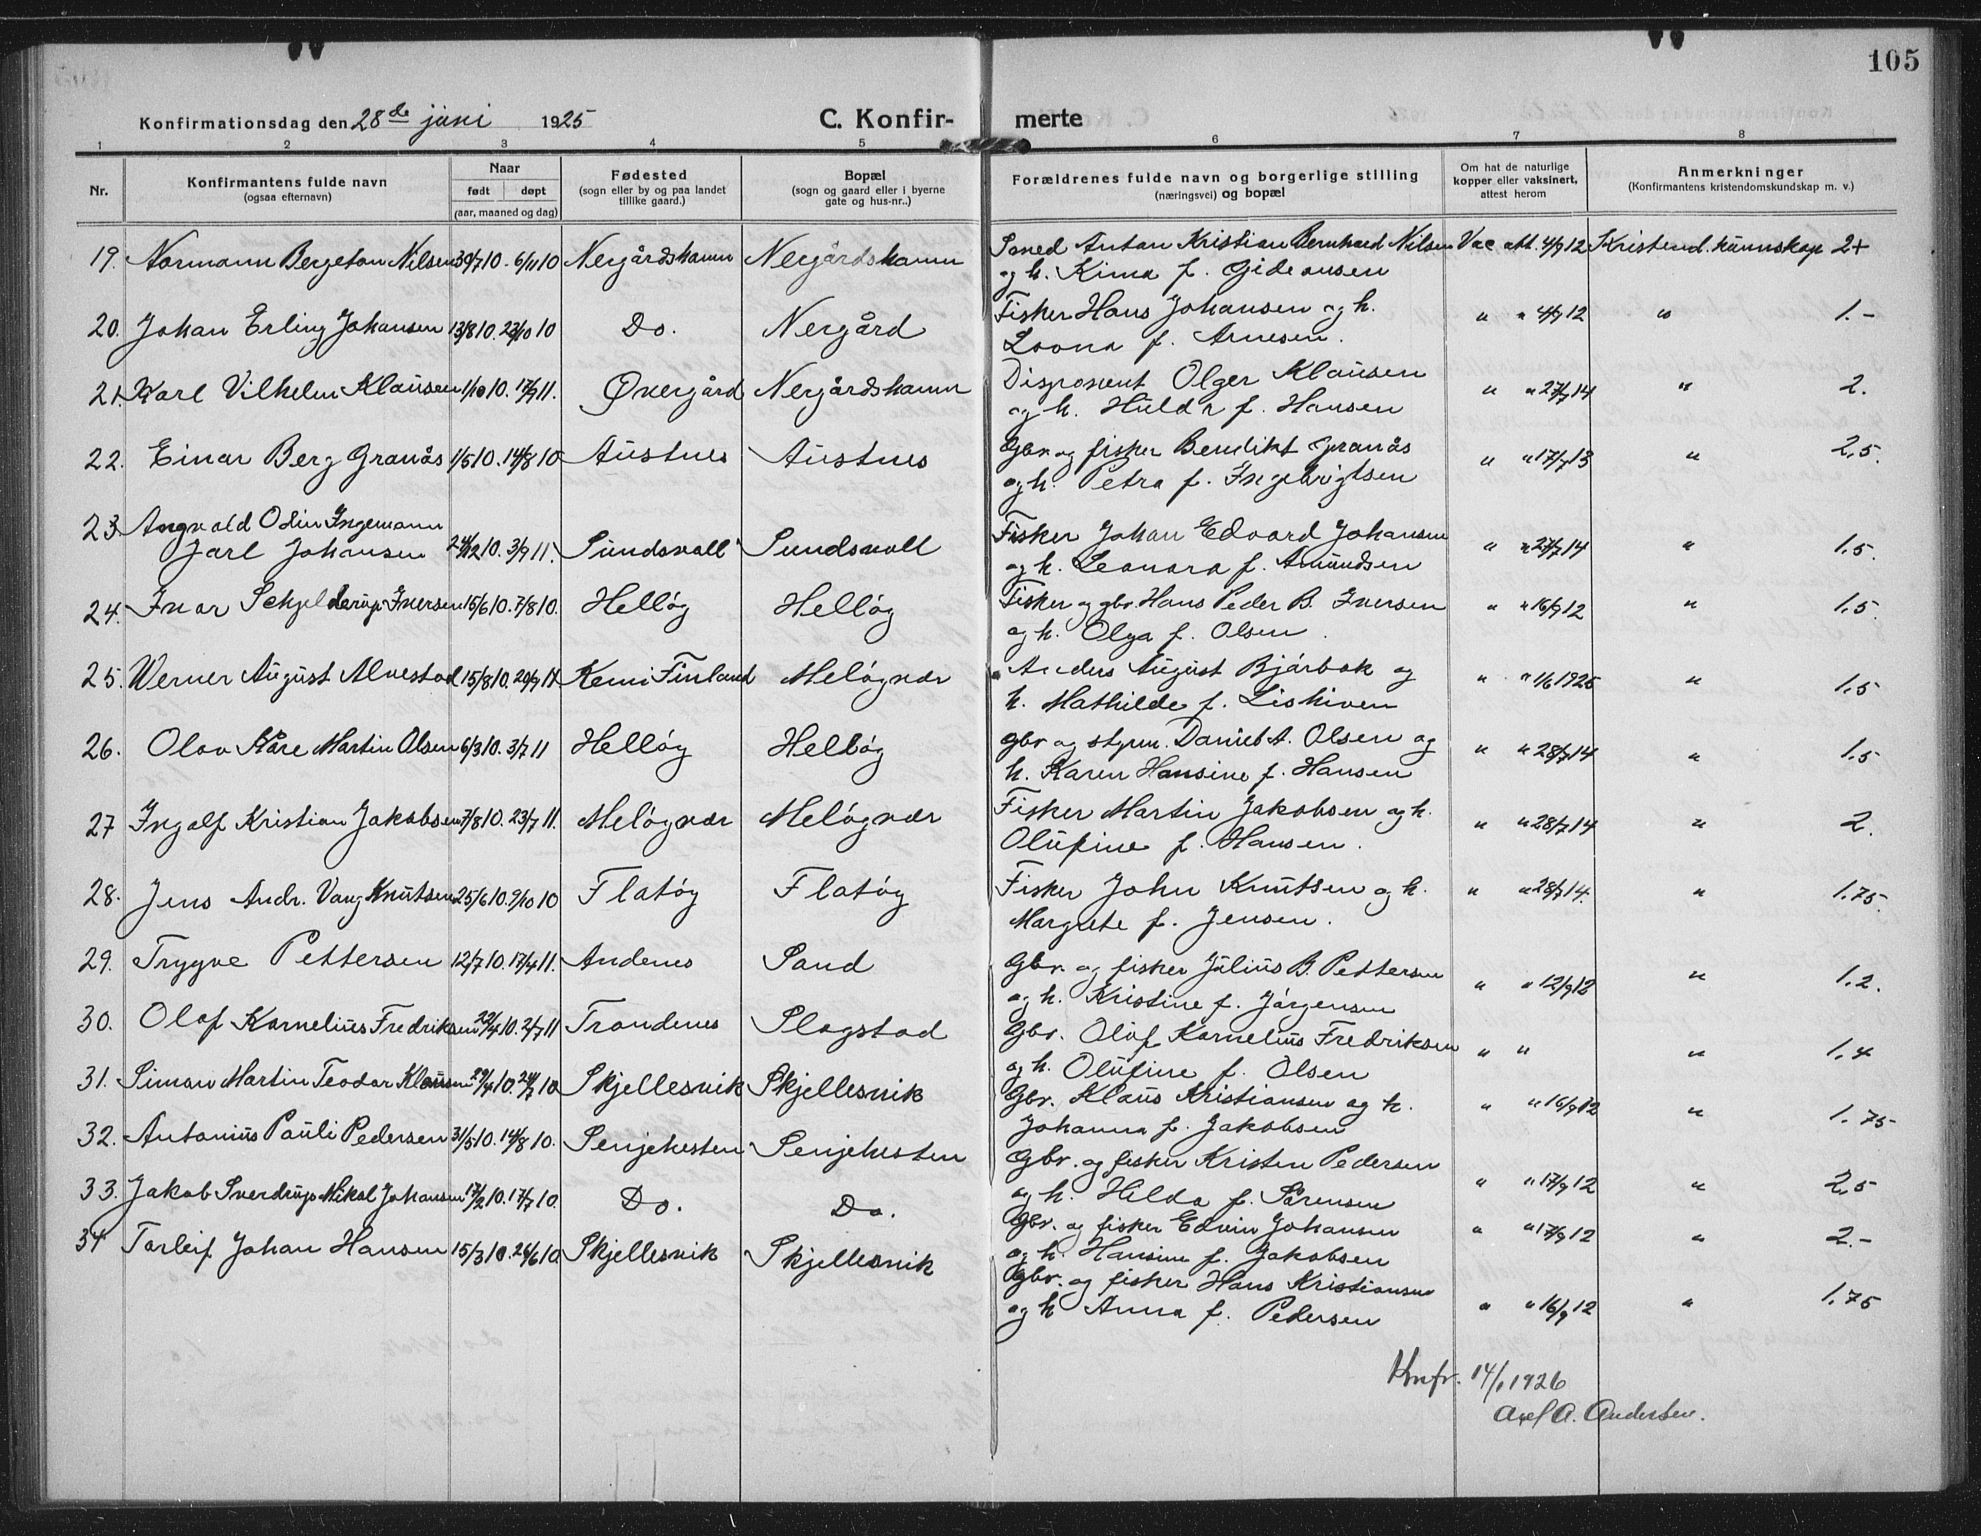 105
Konfirmationsdag den 28de juni 1925 C. Konfir- merte
1 2 3 4 5 6 7 8
Nr.
Konfirmantens fulde navn
(ogsaa efternavn)
Naar
født døpt
(aar, maaned og dag)
Fødested
(sogn eller by og paa landet
tillike gaard.)
Bopæl
(sogn og gaard eller i byerne
gate og hus-nr..)
Forældrenes fulde navn og borgerlige stilling
(næringsvei) og bopæl
Om hat de naturlige
kopper eller vaksinert,
attest herom
Anmerkninger
(Konfirmantens kristendomskundskap m. v.)
19. Normann Bergeton Nilsen 30/7 10. 6/11 10 Nergårdshamn Nergårdshamn Smed Anton Kristian Bernhard Nilsen Vac att. 4/9 12 Kristend. kunnskap 2+
og h. Kima f. Gideonsen
20. Johan Erling Johansen 13/8 10. 23/10 10 Do. Nergård Fisker Hans Johansen og h. " " 4/9 12 " 1.-
Loona f. Arnesen.
21. Karl Vilhelm Klausen 1/10 10. 17/9 11. Øvergård Nergårdshamn Disponent Olger Klausen " " 27/7 14 " 2.
og h. Hulda f. Hansen
22. Einar Berg Granås 1/5 10. 14/8 10 Austnes Austnes Gbr. og fisker Benedikt Granås " " 17/7 13 " 2,5.
og h. Petra f. Ingebrigtsen
23. Angvald Odin Ingemann
Jarl Johansen 24/12 10. 3/9 11. Sundsvoll Sundsvoll Fisker Johan Edvard Johansen " " 27/7 14 " 1.5.
og h. Leonora f. Amundsen
24. Ivar Schjelderup Iversen 15/6 10. 7/8 10. Helløy Helløy Fisker og gbr. Hans Peder B. Iversen " " 16/9 12 " 1.5.
og h. Olga f. Olsen.
25. Werner August Alvestad 15/8 10. 20/9 17 Kemi Finland Meløyvær Anders August Bjørbak og " " 1/6 1925 " 1.5
h. Mathilde f. Lishiven
26. Olov Kåre Martin Olsen 6/3 10. 3/7 11 Helløy Helløy gbr og styrm. Daniel A. Olsen og " " 28/7 14 " 1.5
h. Karen Hansine f. Hansen
27 Ingolf Kristian Jakobsen 7/8 10. 23/7 11. Meløyvær Meløyvær Fisker Martin Jakobsen og h. " " 28/7 14 " 2.
Olufine f. Hansen.
28. Jens Andr. Vang Knutsen 25/6 10. 9/10 10 Flatøy Flatøy Fisker John Knutsen og h. " " 28/7 14. " 1.75.
Margrete f. Jensen.
29. Trygve Pettersen 12/7 10. 17/4 11. Andenes Sand Gbr. og fisker Julius B. Pettersen " " 12/9 12 " 1.2.
og h. Kristine f. Jørgensen
30. Olaf Kornelius Fredriksen 22/4 10. 2/7 11 Trondenes Slagstad Gbr. Olaf Kornelius Fredriksen " " " 1.4
og h. Olufine f. Olsen
31. Simon Martin Teodor Klausen 29/4 10. 24/7 10 Skjellesvik Skjellesvik Gbr. Klaus Kristiansen og h. " " 16/9 12 " 1.75-
Johanna f. Jakobsen
32. Antonius Pauli Pedersen 31/5 10. 14/8 10. Senjehesten Senjehesten Gbr. og fisker Kristen Pedersen " " 17/9 12 " 2,5
og h. Hilda f. Sørensen
33. Jakob Sverdrup Mikal Johansen 17/2 10. 17/7 10. Do. Do. Gbr. og fisker Edvin Johansen " " 17/9 12 " 2.-
og h. Hansine f. Jakobsen
34 Torleif Johan Hansen 15/3 10. 26/6 10. Skjellesvik Skjellesvik Gbr. og fisker Hans Kristiansen " " 16/9 12 " 1.75
og h Anna f. Pedersen
Knfr. 14/1 1926
Axel A. Andersen.